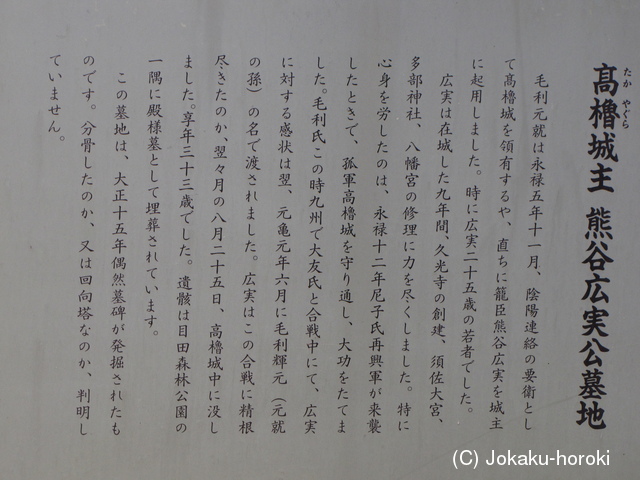 高櫓城主 熊谷広実公墓地
たか やぐら
毛利元就は永禄五年十一月、陰陽連絡の要衝とし
て高櫓城を領有するや、直ちに寵臣熊谷広実を城主
に起用しました。時に広実二十五歳の若者でした。
広実は在城した九年間、久光寺の創建、須佐大宮、
多部神社、八幡宮の修理に力を尽くしました。特に
心身を労したのは、永禄十二年尼子氏再興軍が来襲
したときで、孤軍高櫓城を守り通し、大功をたてま
した。毛利氏この時九州で大友氏と合戦中にて、広実
に対する感状は翌、元亀元年六月に毛利輝元（元就
の孫）の名で渡されました。広実はこの合戦に精根
尽きたのか、翌々月の八月二十五日、高櫓城中に没し
ました。享年三十三歳でした。遺骸は目田森林公園の
一隅に殿様墓として埋葬されています。
この墓地は、大正十五年偶然墓碑が発掘されたも
のです。分骨したのか、又は回向塔なのか、判明し
ていません。
(C) Jokaku-horoki